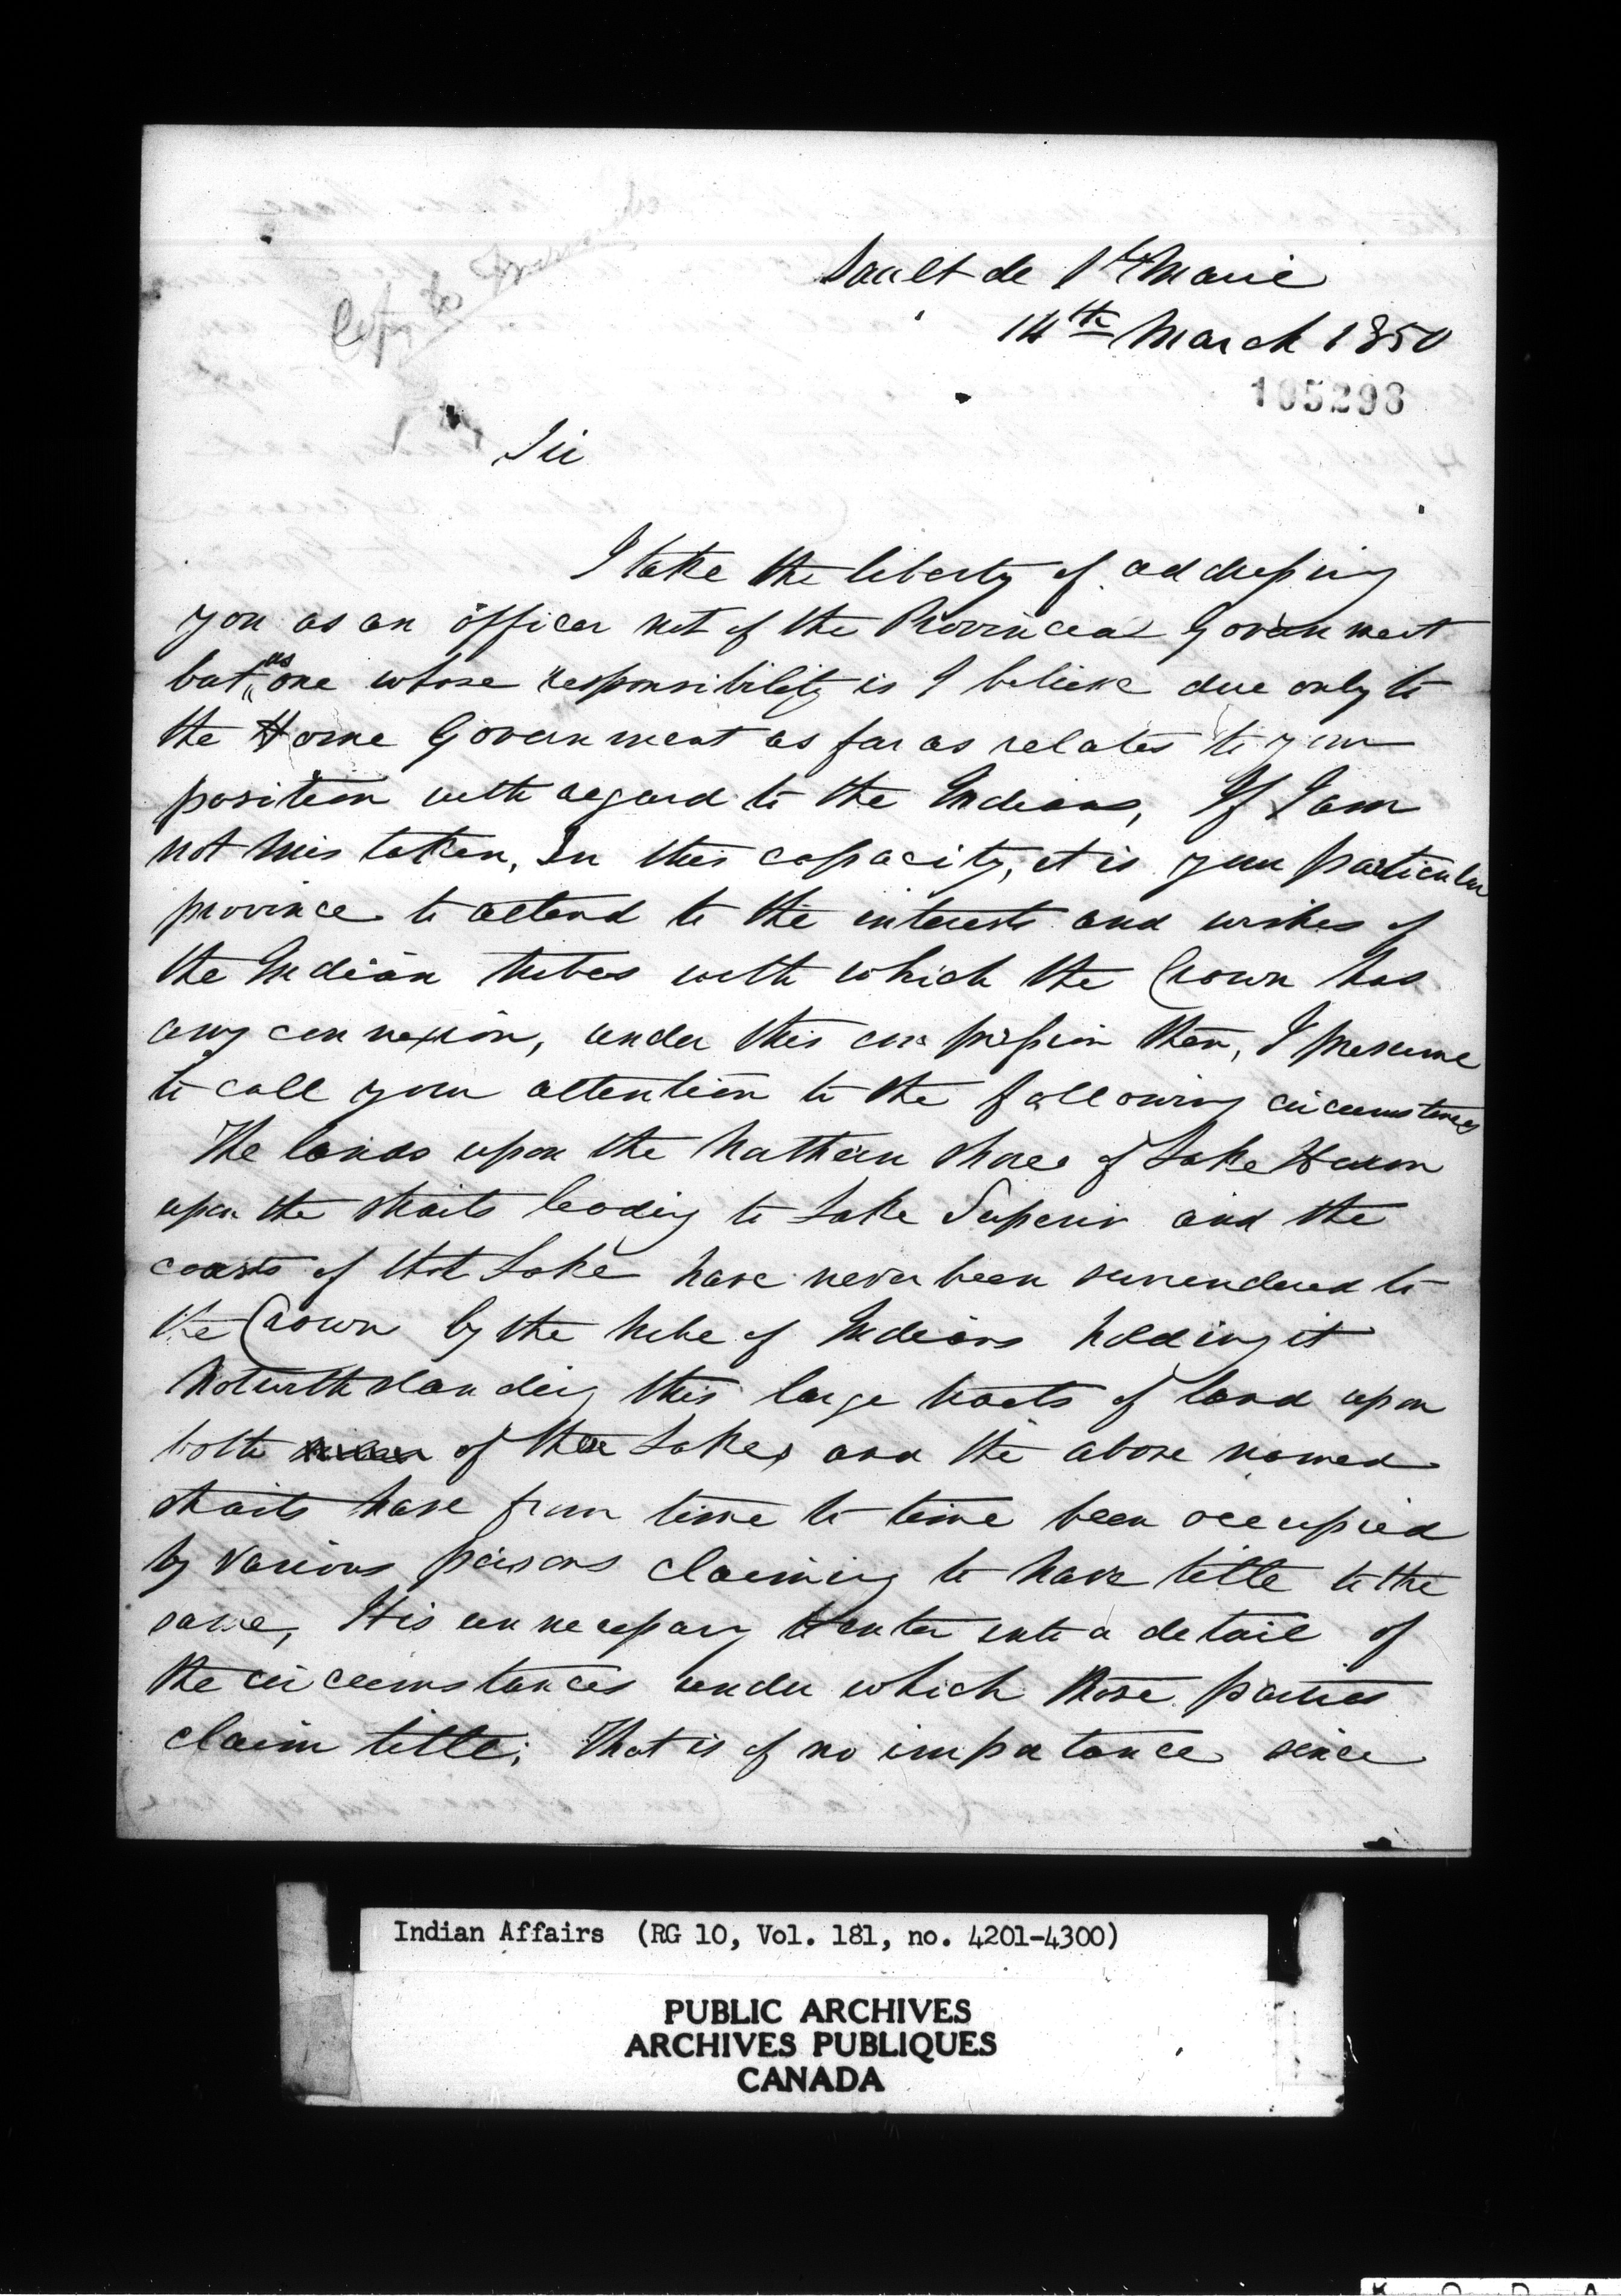 Sault de Ste Marie
14th March 1850
105298
Copy to
Sir
I take the liberty of addressing
you as an officer not of the Provincial Government
but as one whose responsibility is I believe due only to
the Home Government as far as relates to your
position with regard to the Indians, If I am
not mistaken, In this capacity, it is your particular
province to attend to the interests and wishes of
the Indian tribes with which the Crown has
any connexion, under this impression then, I presume
to call your attention to the following circumstances
The lands upon the Northern shores of Lake Huron
upon the straits leading to Lake Superior and the
coasts of that Lake have never been surrendered to
the Crown by the tribe of Indians holding it
Notwithstanding this large tracts of land upon
both of the Lakes and the above named
straits have from time to time been occupied
by various persons claiming to have title to the
same, It is unnecessary to enter into a detail of
the circumstances under which those parties
claim title; That is of no importance since
Indian Affairs (RG 10, Vol. 181, no. 4201-4300)
PUBLIC ARCHIVES
ARCHIVES PUBLIQUES
CANADA